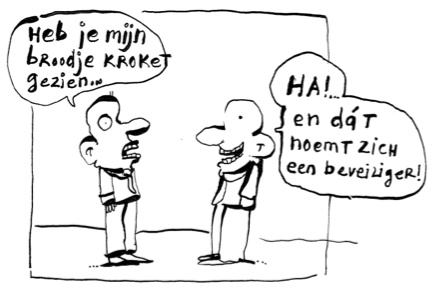 Heb je mijn
broodje KROKET
gezien...
HA!..
en dát
noemt zich
een beveiliger!